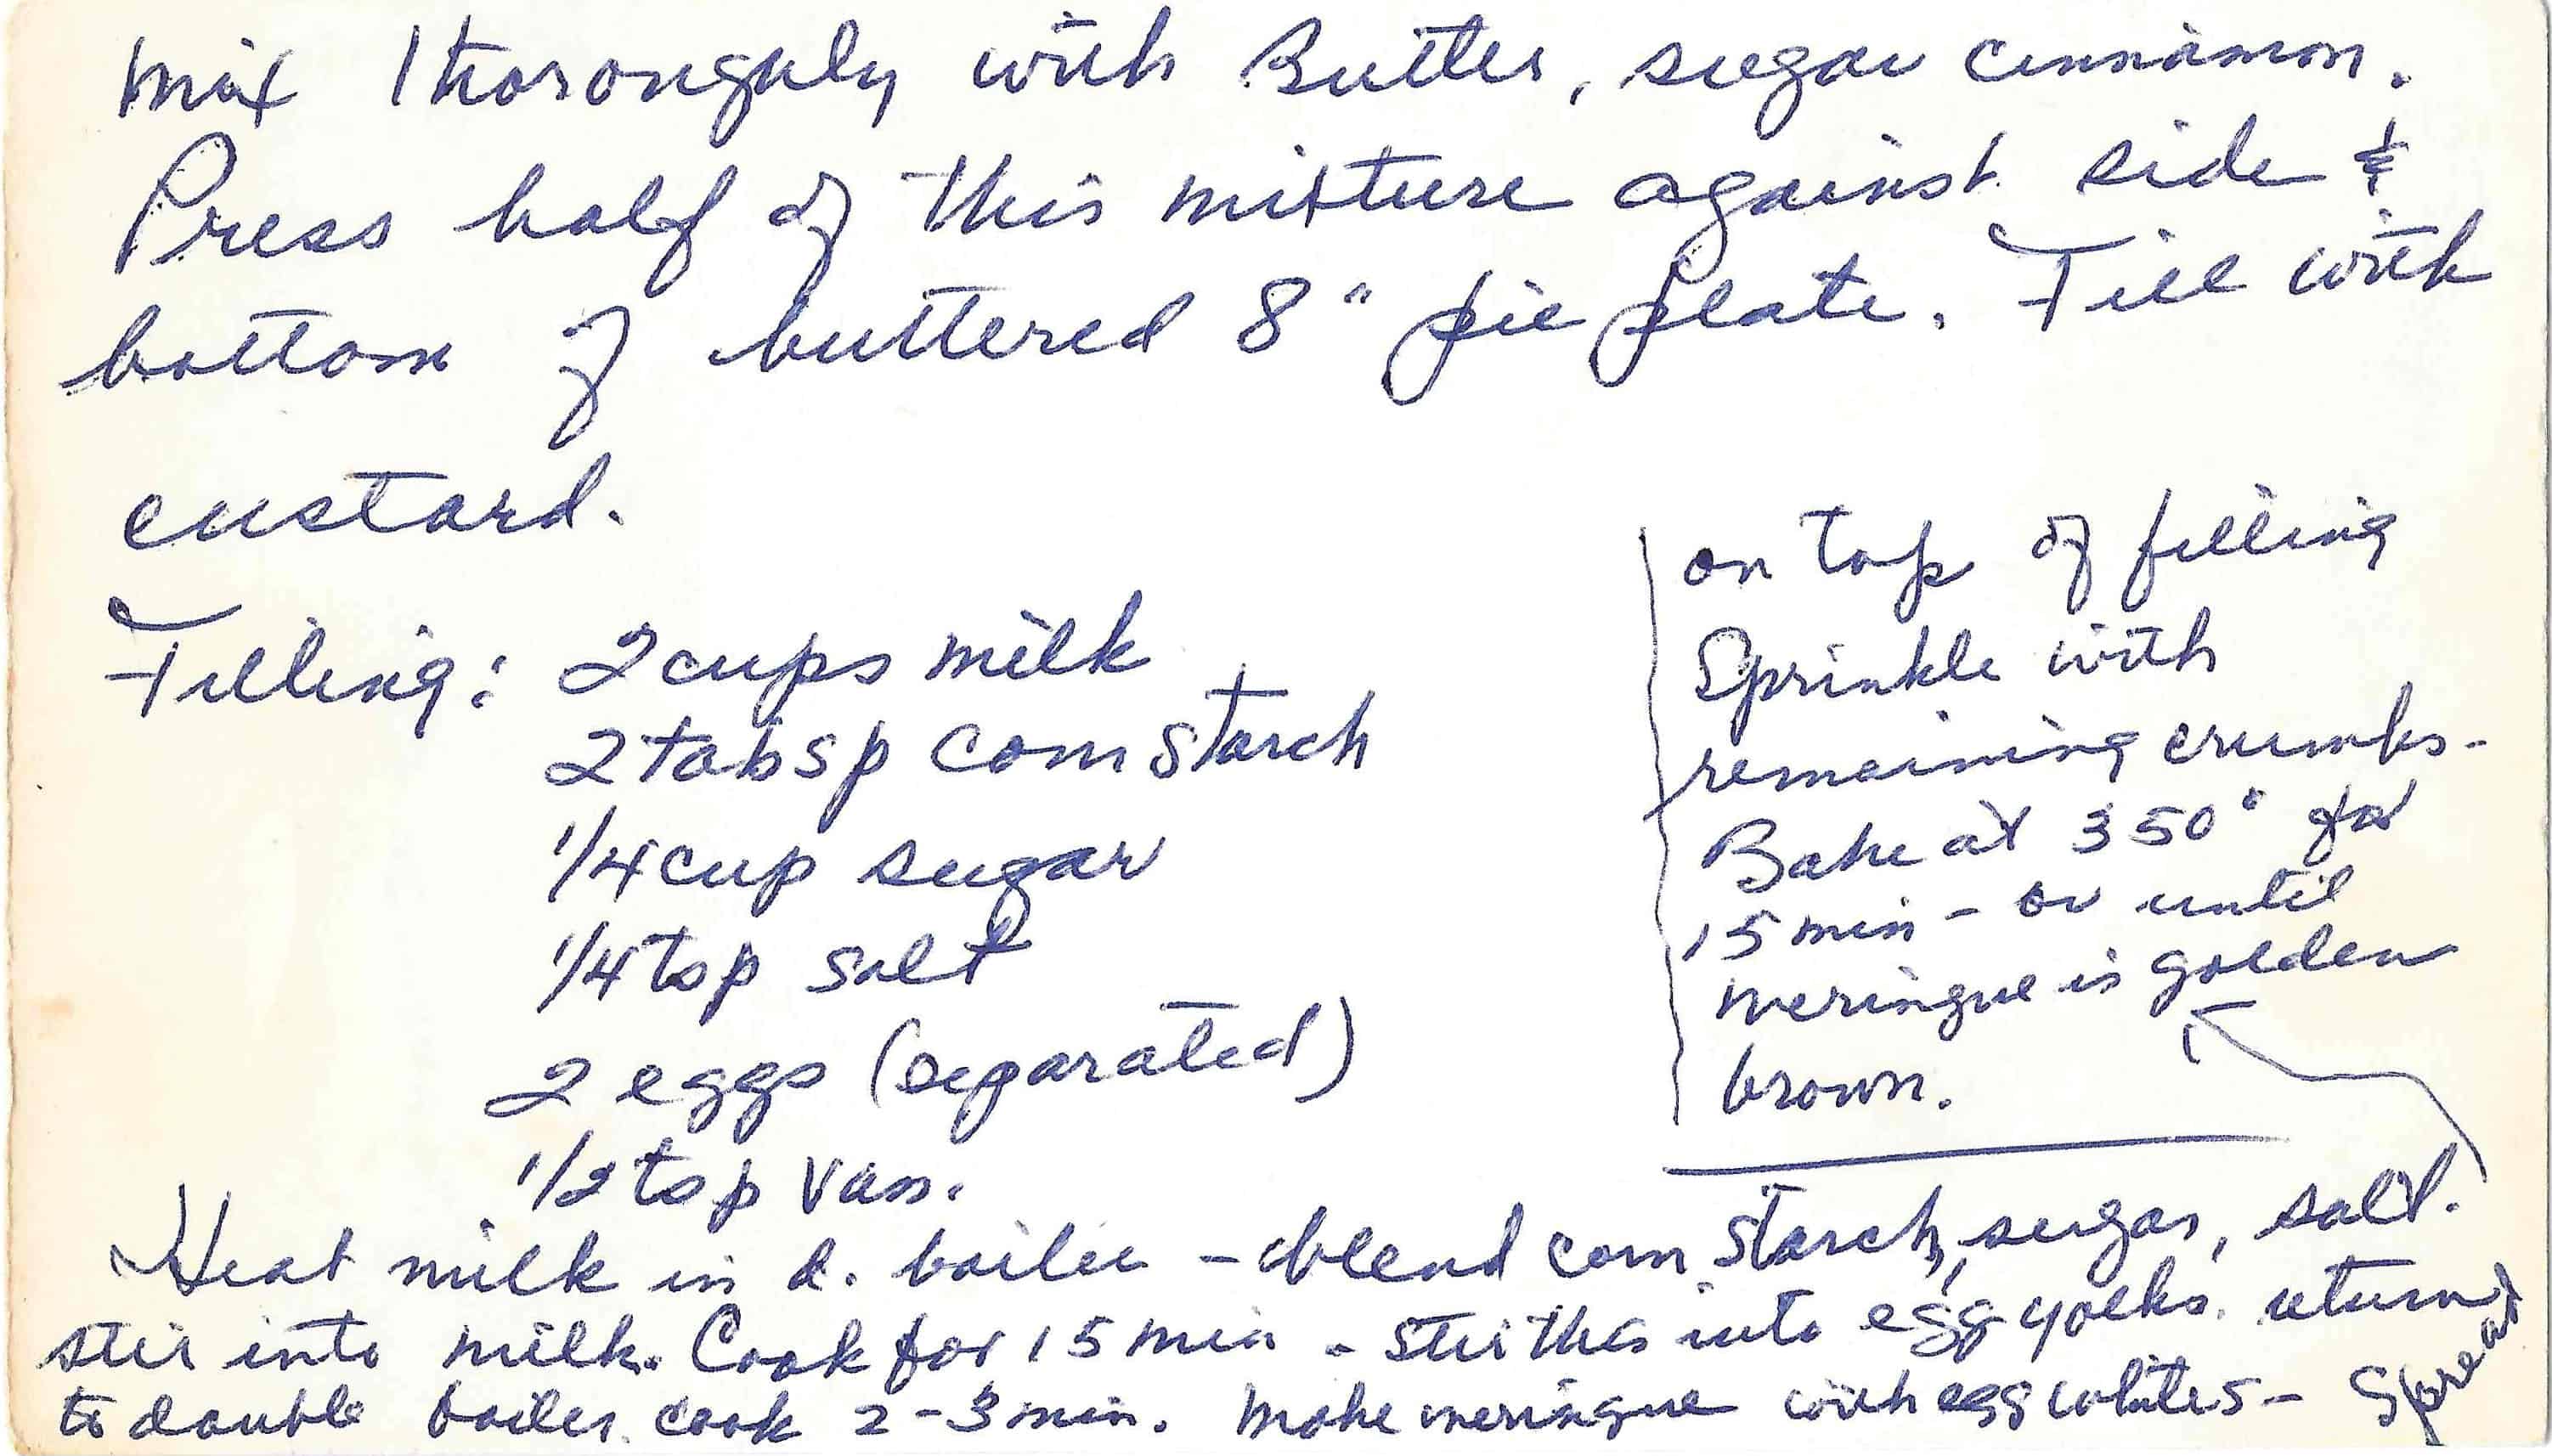 Mix thoroughly with Butter, sugar cinnamon.
Press half of this mixture against side &
bottom of buttered 8" pie plate. Fill with
custard.
Filling: 2 cups milk
2 tabsp corn starch
1/4 cup sugar
1/4 tsp salt
2 eggs (separated)
1/2 tsp Van.
Heat milk in d. boiler - blend corn starch, sugar, salt.
stir into milk. Cook for 15 min - Stir this into egg yolks. return
to double boiler. cook 2-3 min. Make meringue with egg whites - Spread
on top of filling
Sprinkle with
remaining crumbs-
Bake at 350° for
15 min - or until
meringue is golden
brown.